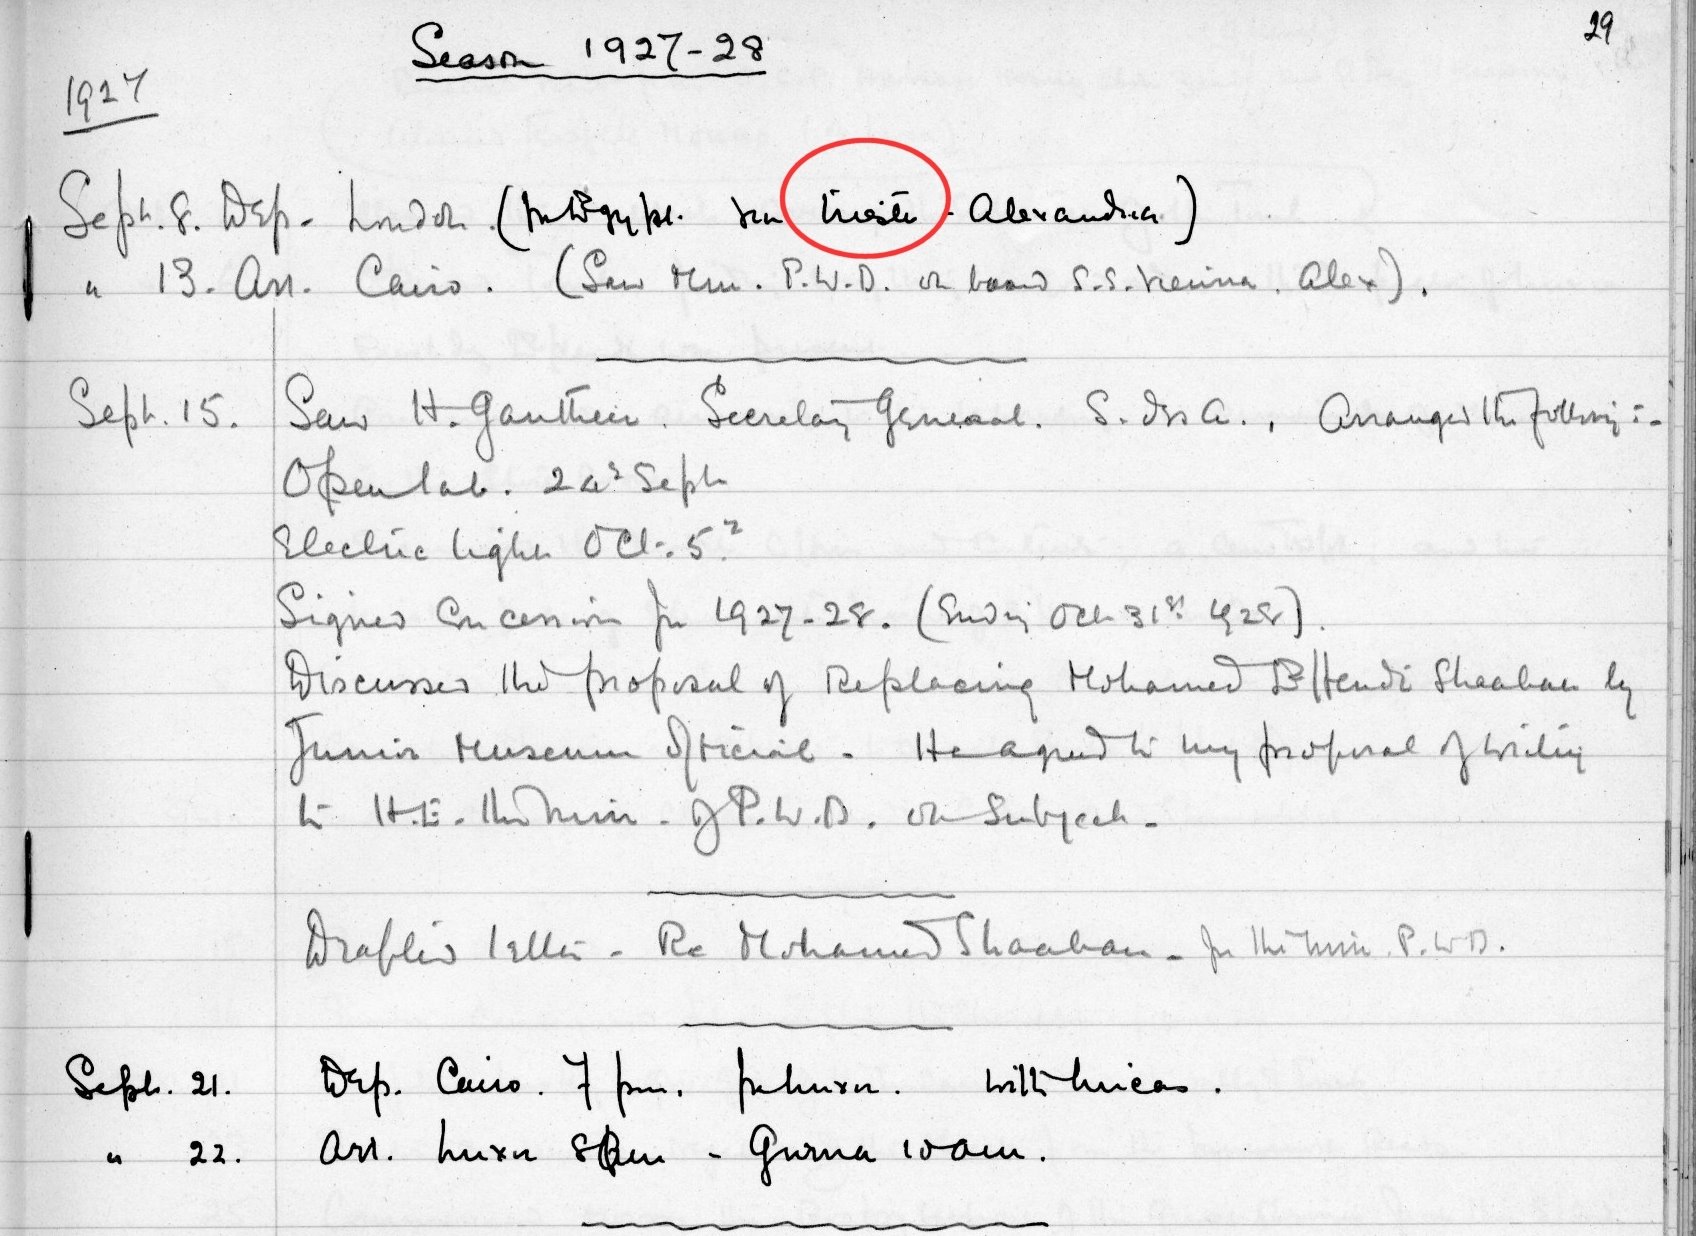 29
Season 1927-28
1927
Sept. 8. Dep. London (for Egypt. via Trieste - Alexandria)
" 13. Arr. Cairo. (Saw Min. P.W.D. on board S.S. Vienna. Alex).
Sept. 15. Saw H. Gauthier. Secretary General. S. des A., Arranged the following:-
Open lab. 22nd Sept
Electric light Oct. 5.
Signed Concession for 1927-28. (Ending Oct 31st 1928).
Discussed the proposal of Replacing Mohamed Effendi Shaaban by
Junior Museum Official. He agreed to my proposal of writing
to H.E. the Min. of P.W.D. on Subject.
Drafted letter - Re Mohamed Shaaban - for the Min. P.W.D.
Sept. 21. Dep. Cairo. 7 pm. for Luxor. with Lucas.
" 22. Arr. Luxor 8 am - Gurna 10 am.